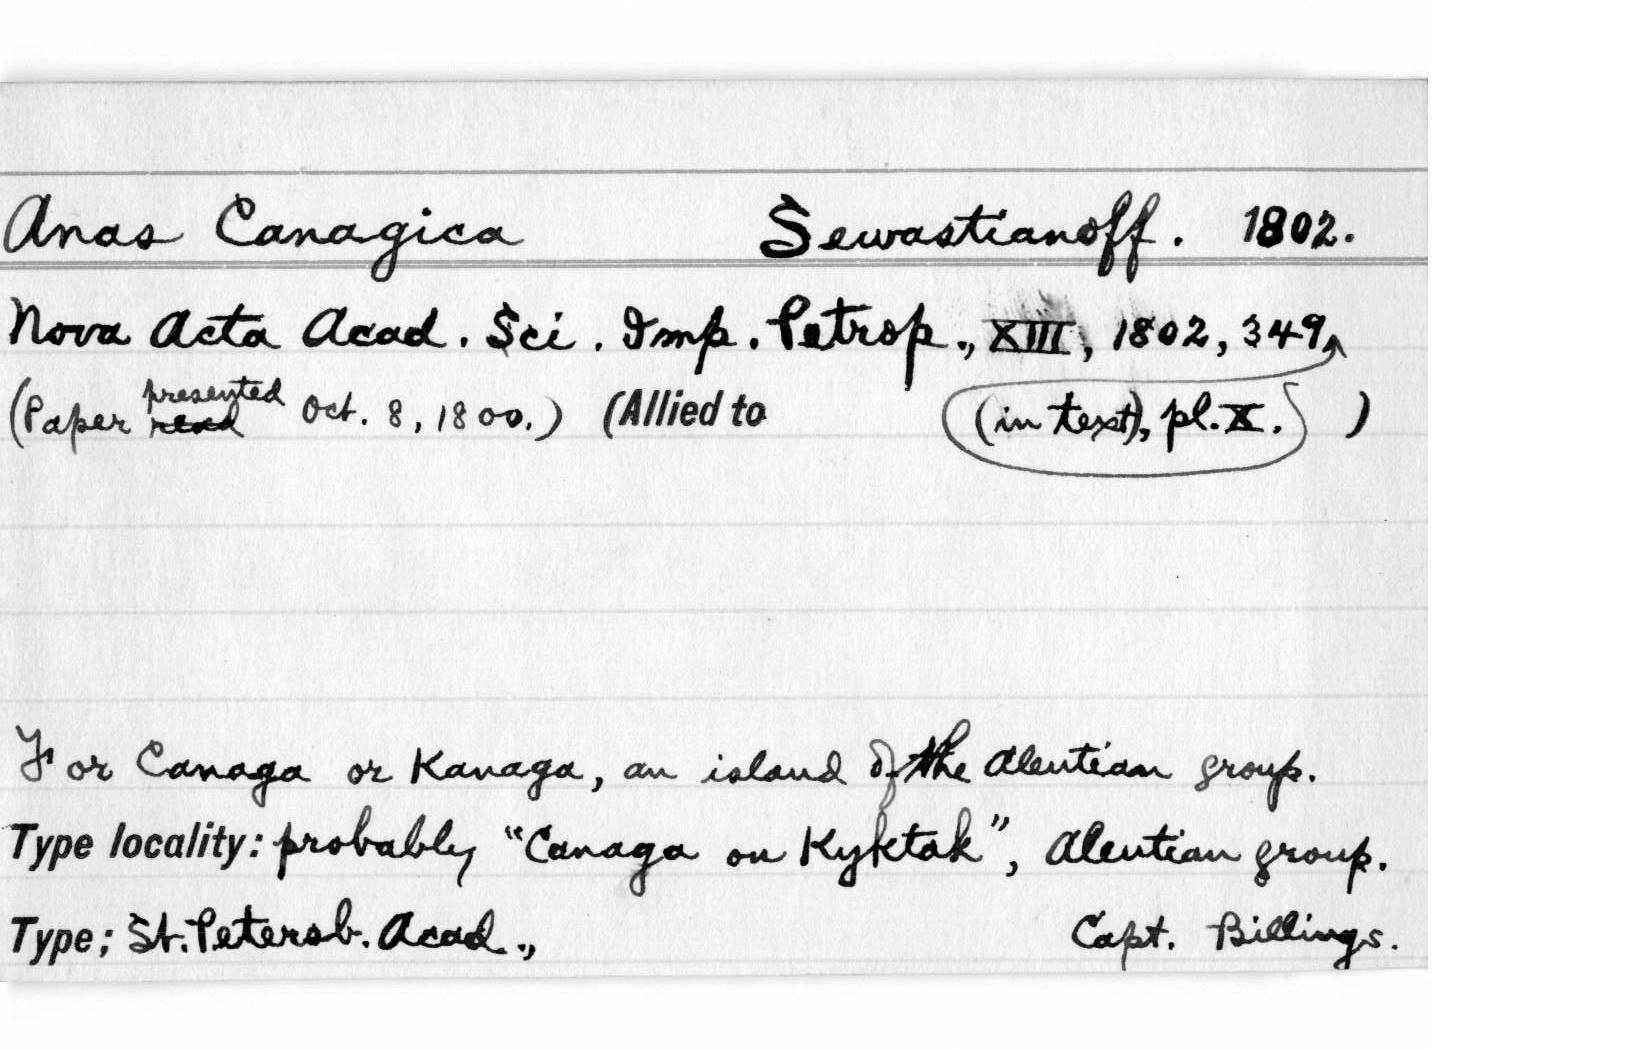 Anas Canagica Sewastianoff. 1802.
Nova Acta Acad. Sci. Imp. Petrop., XIII, 1802, 349,
(Paper read presented Oct. 8, 1800.) (Allied to (in text), pl. X. )
For Canaga or Kanaga, an island of the Aleutian group.
Type locality: probably "Canaga ou Kyktak", Aleutian group.
Type; St. Petersb. Acad., Capt. Billings.